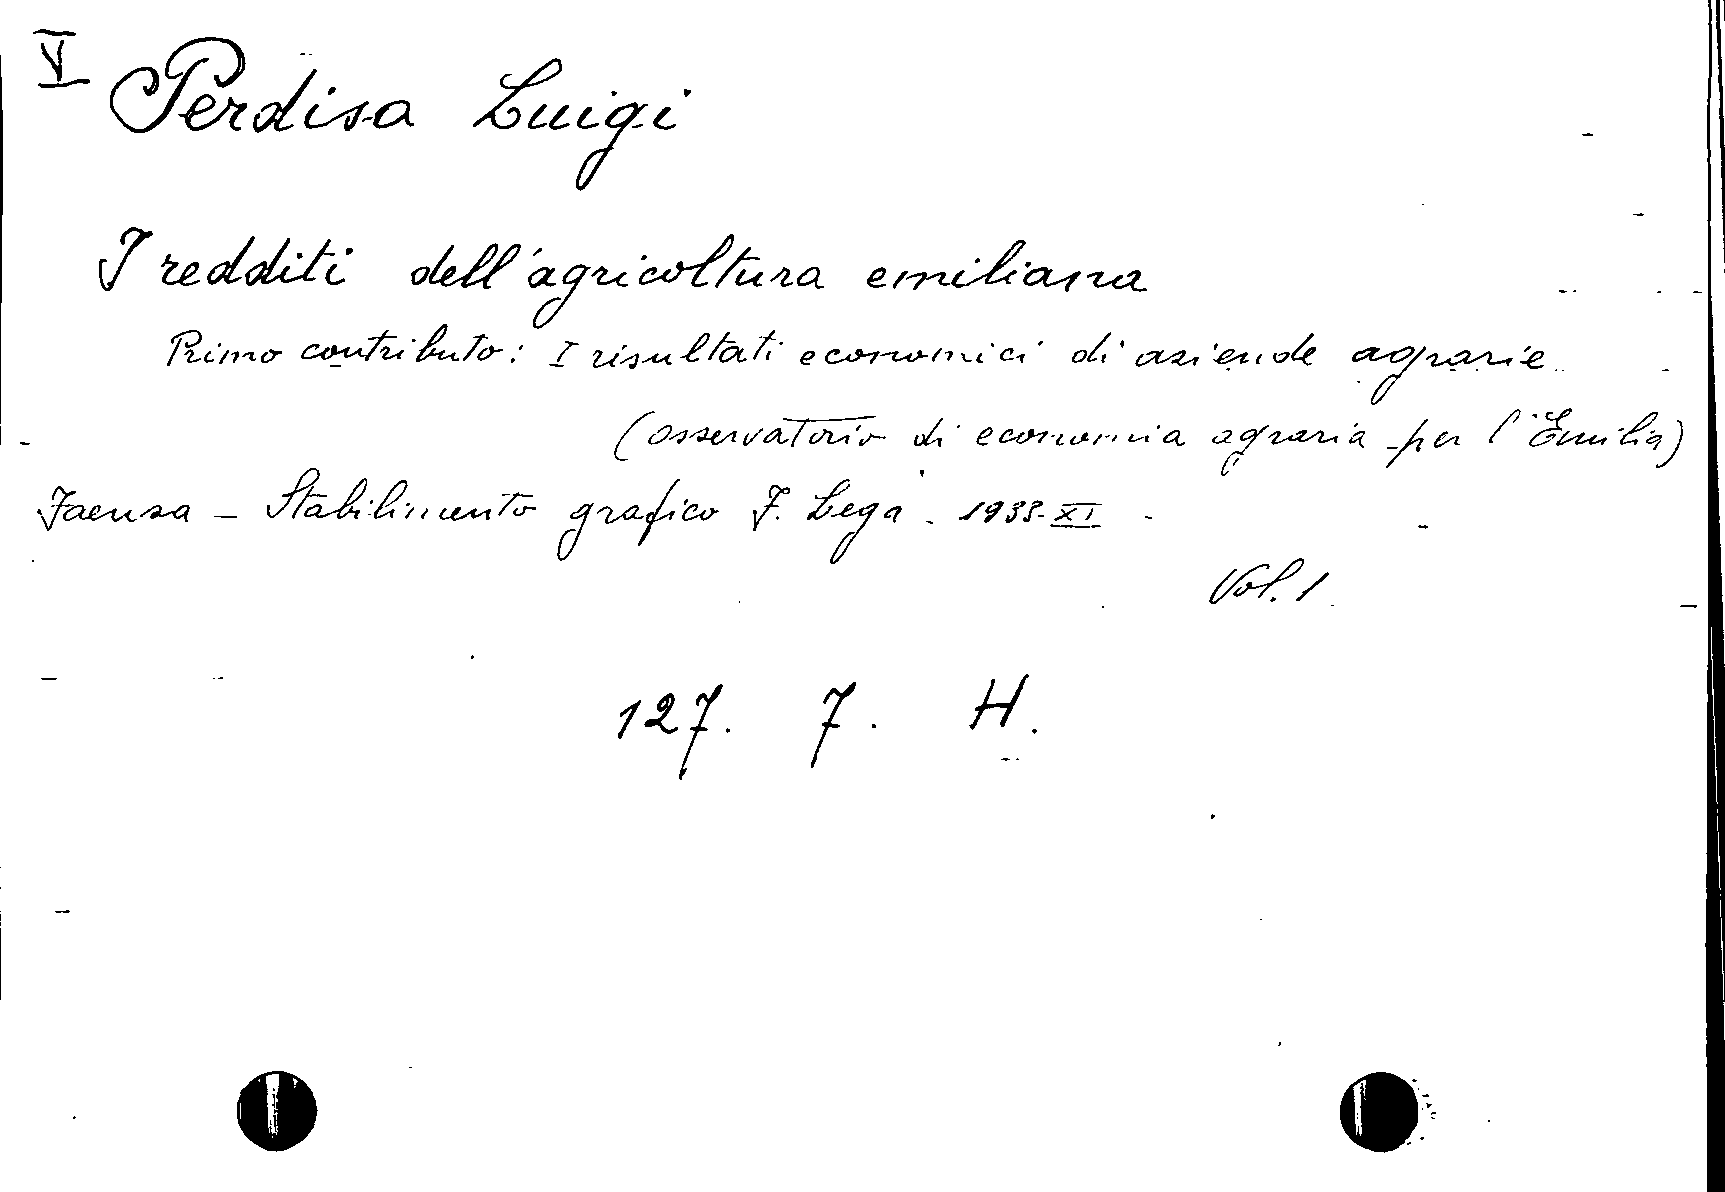 V
Perdisa Luigi
I redditi dell'agricoltura emiliana
Primo contributo: I risultati economici di aziende agrarie
(osservatorio di economia agraria per l'Emilia)
Faenza - Stabilimento grafico F. Lega. 1933-XI -
Vol. 1
127. 7. H.